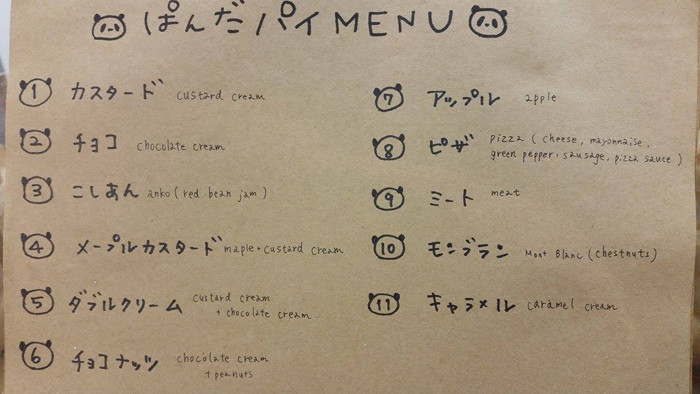 ぱんだパイMENU
① カスタード custard cream
② チョコ chocolate cream
③ こしあん anko (red bean jam)
④ メープルカスタード maple + custard cream
⑤ ダブルクリーム custard cream
+ chocolate cream
⑥ チョコナッツ chocolate cream
+ peanuts
⑦ アップル apple
⑧ ピザ pizza (cheese, mayonnaise,
green pepper, sausage, pizza sauce)
⑨ ミート meat
⑩ モンブラン Mont Blanc (chestnuts)
⑪ キャラメル caramel cream